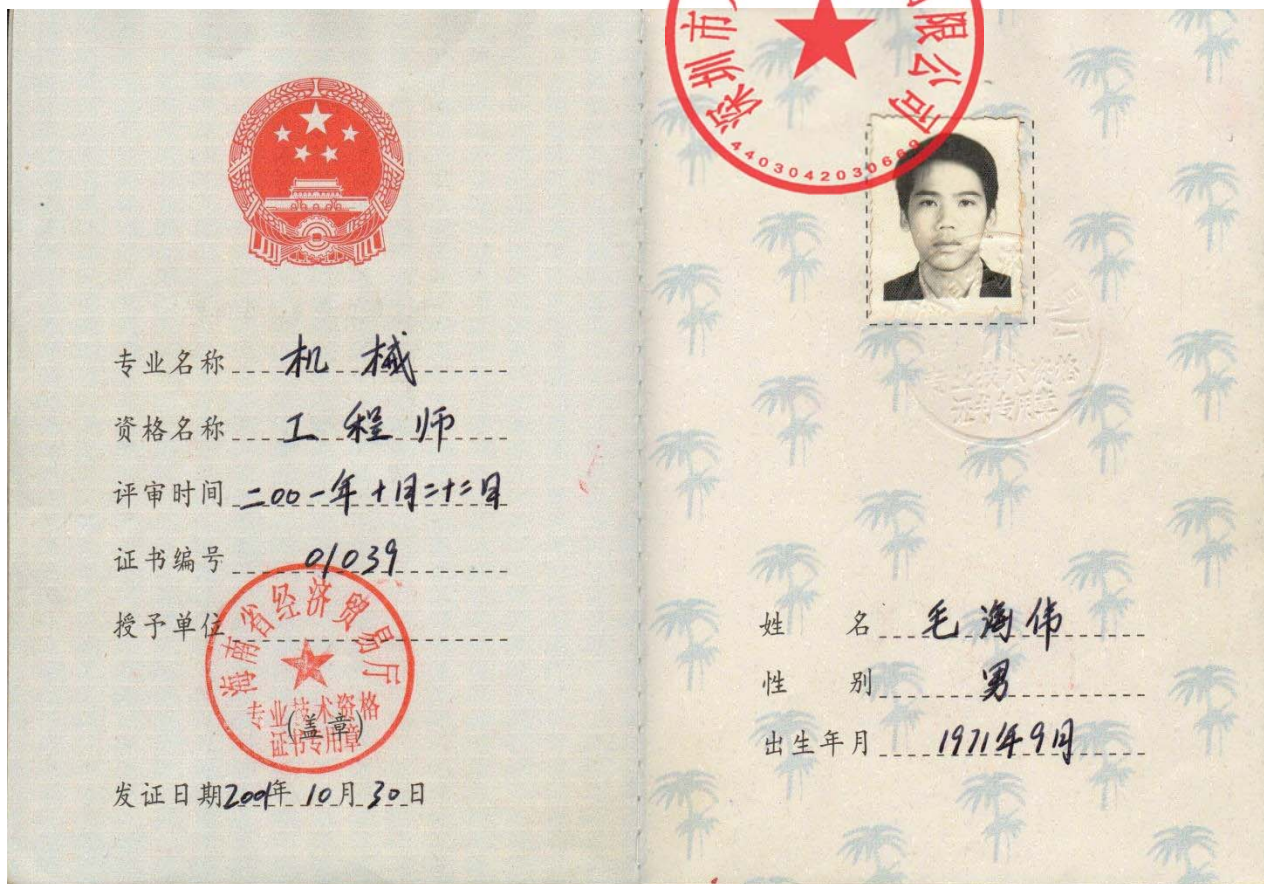 专业名称 机械
资格名称 工程师
评审时间 二00一年十月二十二日
证书编号 01039
授予单位
海南省经济贸易厅
专业技术资格
证书专用章
(盖章)
发证日期 2001年 10月 30日
深圳市
有限公司
4403042030669
专业技术资格
证书专用章
姓 名 毛海伟
性 别 男
出生年月 1971年9月